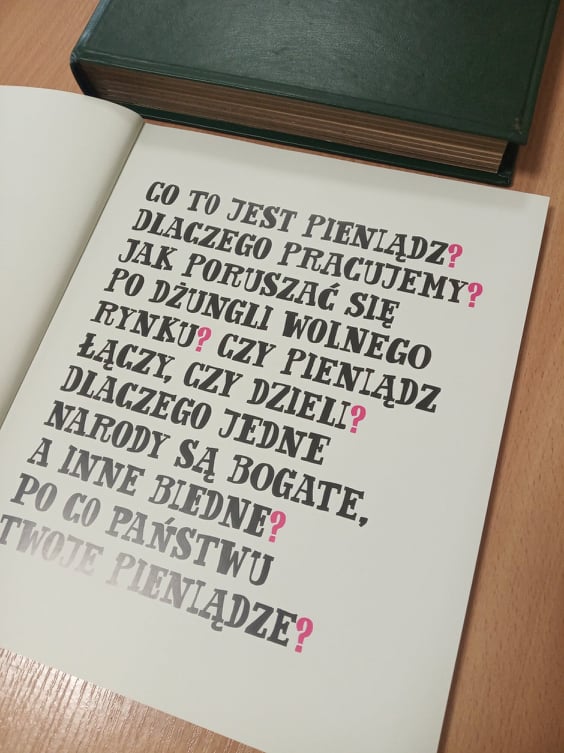 CO TO JEST PIENIĄDZ?
DLACZEGO PRACUJEMY?
JAK PORUSZAĆ SIĘ
PO DŻUNGLI WOLNEGO
RYNKU? CZY PIENIĄDZ
ŁĄCZY, CZY DZIELI?
DLACZEGO JEDNE
NARODY SĄ BOGATE,
A INNE BIEDNE?
PO CO PAŃSTWU
TWOJE PIENIĄDZE?